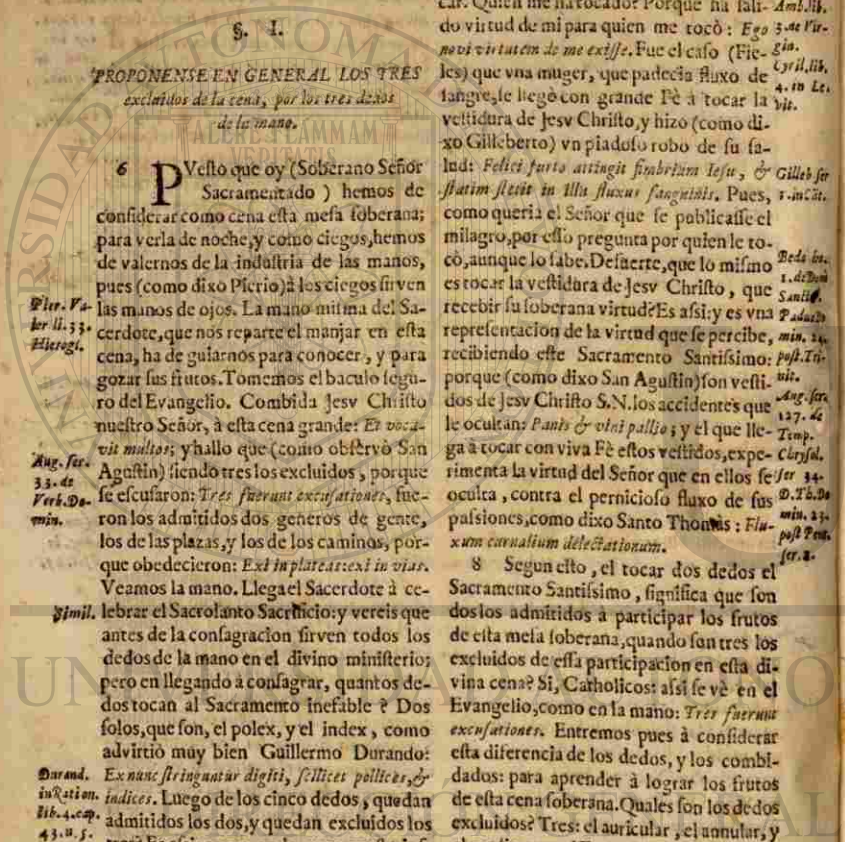 §. I.
PROPONENSE EN GENERAL LOS TRES
excluidos de la cena, por los tres dedos
de la mano.
6 PVesto que oy (Soberano Señor
Sacramentado ) hemos de
considerar como cena esta mesa soberana;
para verla de noche,y como ciegos,hemos
de valernos de la industria de las manos,
pues (como dixo Pierio)à los ciegos sirven
las manos de ojos. La mano misma del Sa-
cerdote,que nos reparte el manjar en esta
cena, ha de guiarnos para conocer , y para
gozar sus frutos.Tomemos el baculo segu-
ro del Evangelio. Combida Jesv Christo
nuestro Señor, à esta cena grande: Et voca-
vit multos; y hallo que (como observò San
Agustin) siendo tres los excluidos , porque
se escusaron: Tres fuerunt excusationes, fue-
ron los admitidos dos generos de gente,
los de las plazas,y los de los caminos, por-
que obedecieron: Exi in plateas:exi in vias.
Veamos la mano. Llega el Sacerdote à ce-
lebrar el Sacrosanto Sacrificio:y vereis que
antes de la consagracion sirven todos los
dedos de la mano en el divino ministerio;
pero en llegando à consagrar, quantos de-
dos tocan al Sacramento inefable ? Dos
solos,que son, el polex, y el index , como
advirtiò muy bien Guillermo Durando:
Ex nunc stringuntur digiti, scilicet pollices,&
indices. Luego de los cinco dedos , quedan
admitidos los dos,y quedan excluidos los
Pier. Va-
ler li. 33.
Hierogl.
Aug. ser.
33. de
Verb.Do-
min.
Simil.
Durand.
in Ration.
lib.4.cap.
43.n.5.
car. Quien me ha tocado? Porque ha sali-
do virtud de mi para quien me tocò : Ego
novi virtutem de me exisse. Fue el caso (Fie-
les) que vna muger, que padecia fluxo de
sangre,le llegò con grande Fè à tocar la
vestidura de Jesv Christo,y hizo (como di-
xo Gilleberto) vn piadoso robo de su sa-
lud: Felici furto attingit fimbriam Iesu, &
statim stetit in illa fluxus sanguinis. Pues,
como queria el Señor que se publicasse el
milagro,por esso pregunta por quien le to-
cò,aunque lo sabe.Desuerte,que lo mismo
es tocar la vestidura de Jesv Christo , que
recibir su soberana virtud?Es assi:y es vna
representacion de la virtud que se percibe,
recibiendo este Sacramento Santissimo:
porque (como dixo San Agustin)son vesti-
dos de Jesv Christo S.N.los accidentes que
le ocultan: Panis & vini pallio; y el que lle-
ga à tocar con viva Fè estos vestidos,expe-
rimenta la virtud del Señor que en ellos se
oculta , contra el pernicioso fluxo de sus
passiones,como dixo Santo Thomàs : Flu-
xum carnalium delectationum.
8 Segun esto , el tocar dos dedos el
Sacramento Santissimo , significa que son
dos los admitidos à participar los frutos
de esta mesa soberana,quando son tres los
excluidos de essa participacion en esta di-
vina cena? Si, Catholicos: assi se vè en el
Evangelio,como en la mano: Tres fuerunt
excusationes. Entremos pues à considerar
esta diferencia de los dedos, y los combi-
dados: para aprender à lograr los frutos
de esta cena soberana.Quales son los dedos
excluidos? Tres: el auricular , el annular, y
Amb.lib.
3.de Vir-
gin.
Cyril.lib.
4. in Le-
vit.
Gilleb ser
1.in Cãt.
Beda in.
1. de
min. 24.
post.Tri-
nit.
Aug.ser.
127. de
Temp.
Chrysol.
ser 34.
D.Th.Do
min. 23.
post Pent.
ser.2.
UN